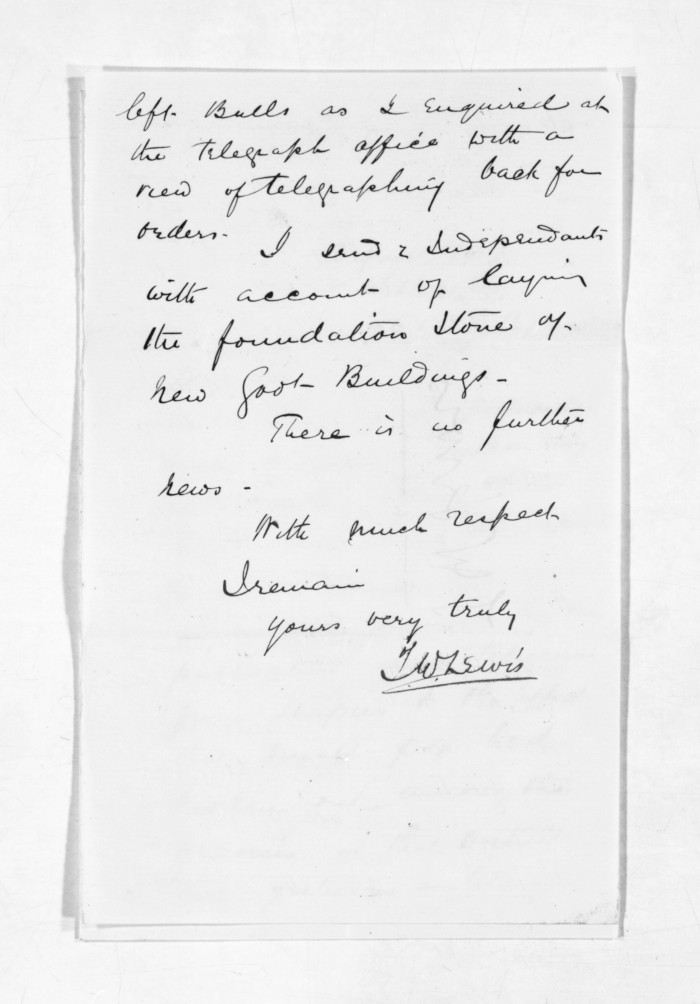 left Bulls as I enquired at
the telegraph office with a
view of telegraphing back for
orders.
I send 2 Independants
with account of laying
the foundation stone of
new Govt Buildings -
There is no further
news -
With much respect
I remain
yours very truly
T. W. Lewis